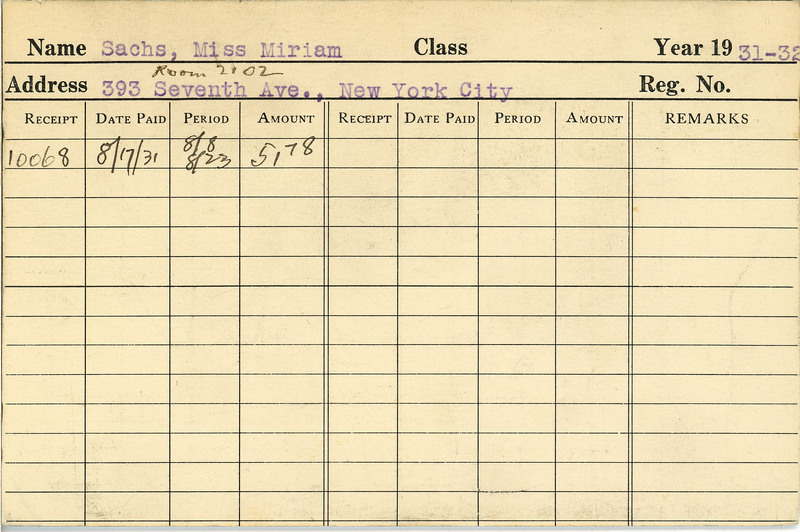 Name Sachs, Miss Miriam Class Year 19 31-32
Room 2102
Address 393 Seventh Ave., New York City Reg. No.
RECEIPT DATE PAID PERIOD AMOUNT RECEIPT DATE PAID PERIOD AMOUNT REMARKS
10068 8/17/31 8/8 8/23 5,78